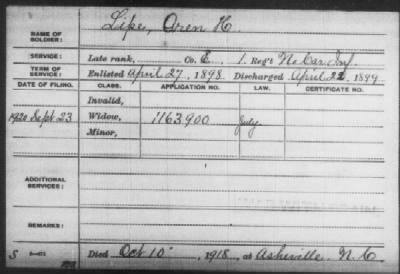 NAME OF SOLDIER: Like, Oren H.
SERVICE: Late rank, Co. E, 1. Reg't No Car Inf.
TERM OF SERVICE: Enlisted April 27, 1898. Discharged April 22, 1899.
DATE OF FILING. CLASS. APPLICATION NO. LAW. CERTIFICATE NO.
Invalid,
1920 Sept 23 Widow, 1163900 July
Minor,
ADDITIONAL SERVICES:
REMARKS:
Died Oct 10, 1918, at Asheville. N. C.
S